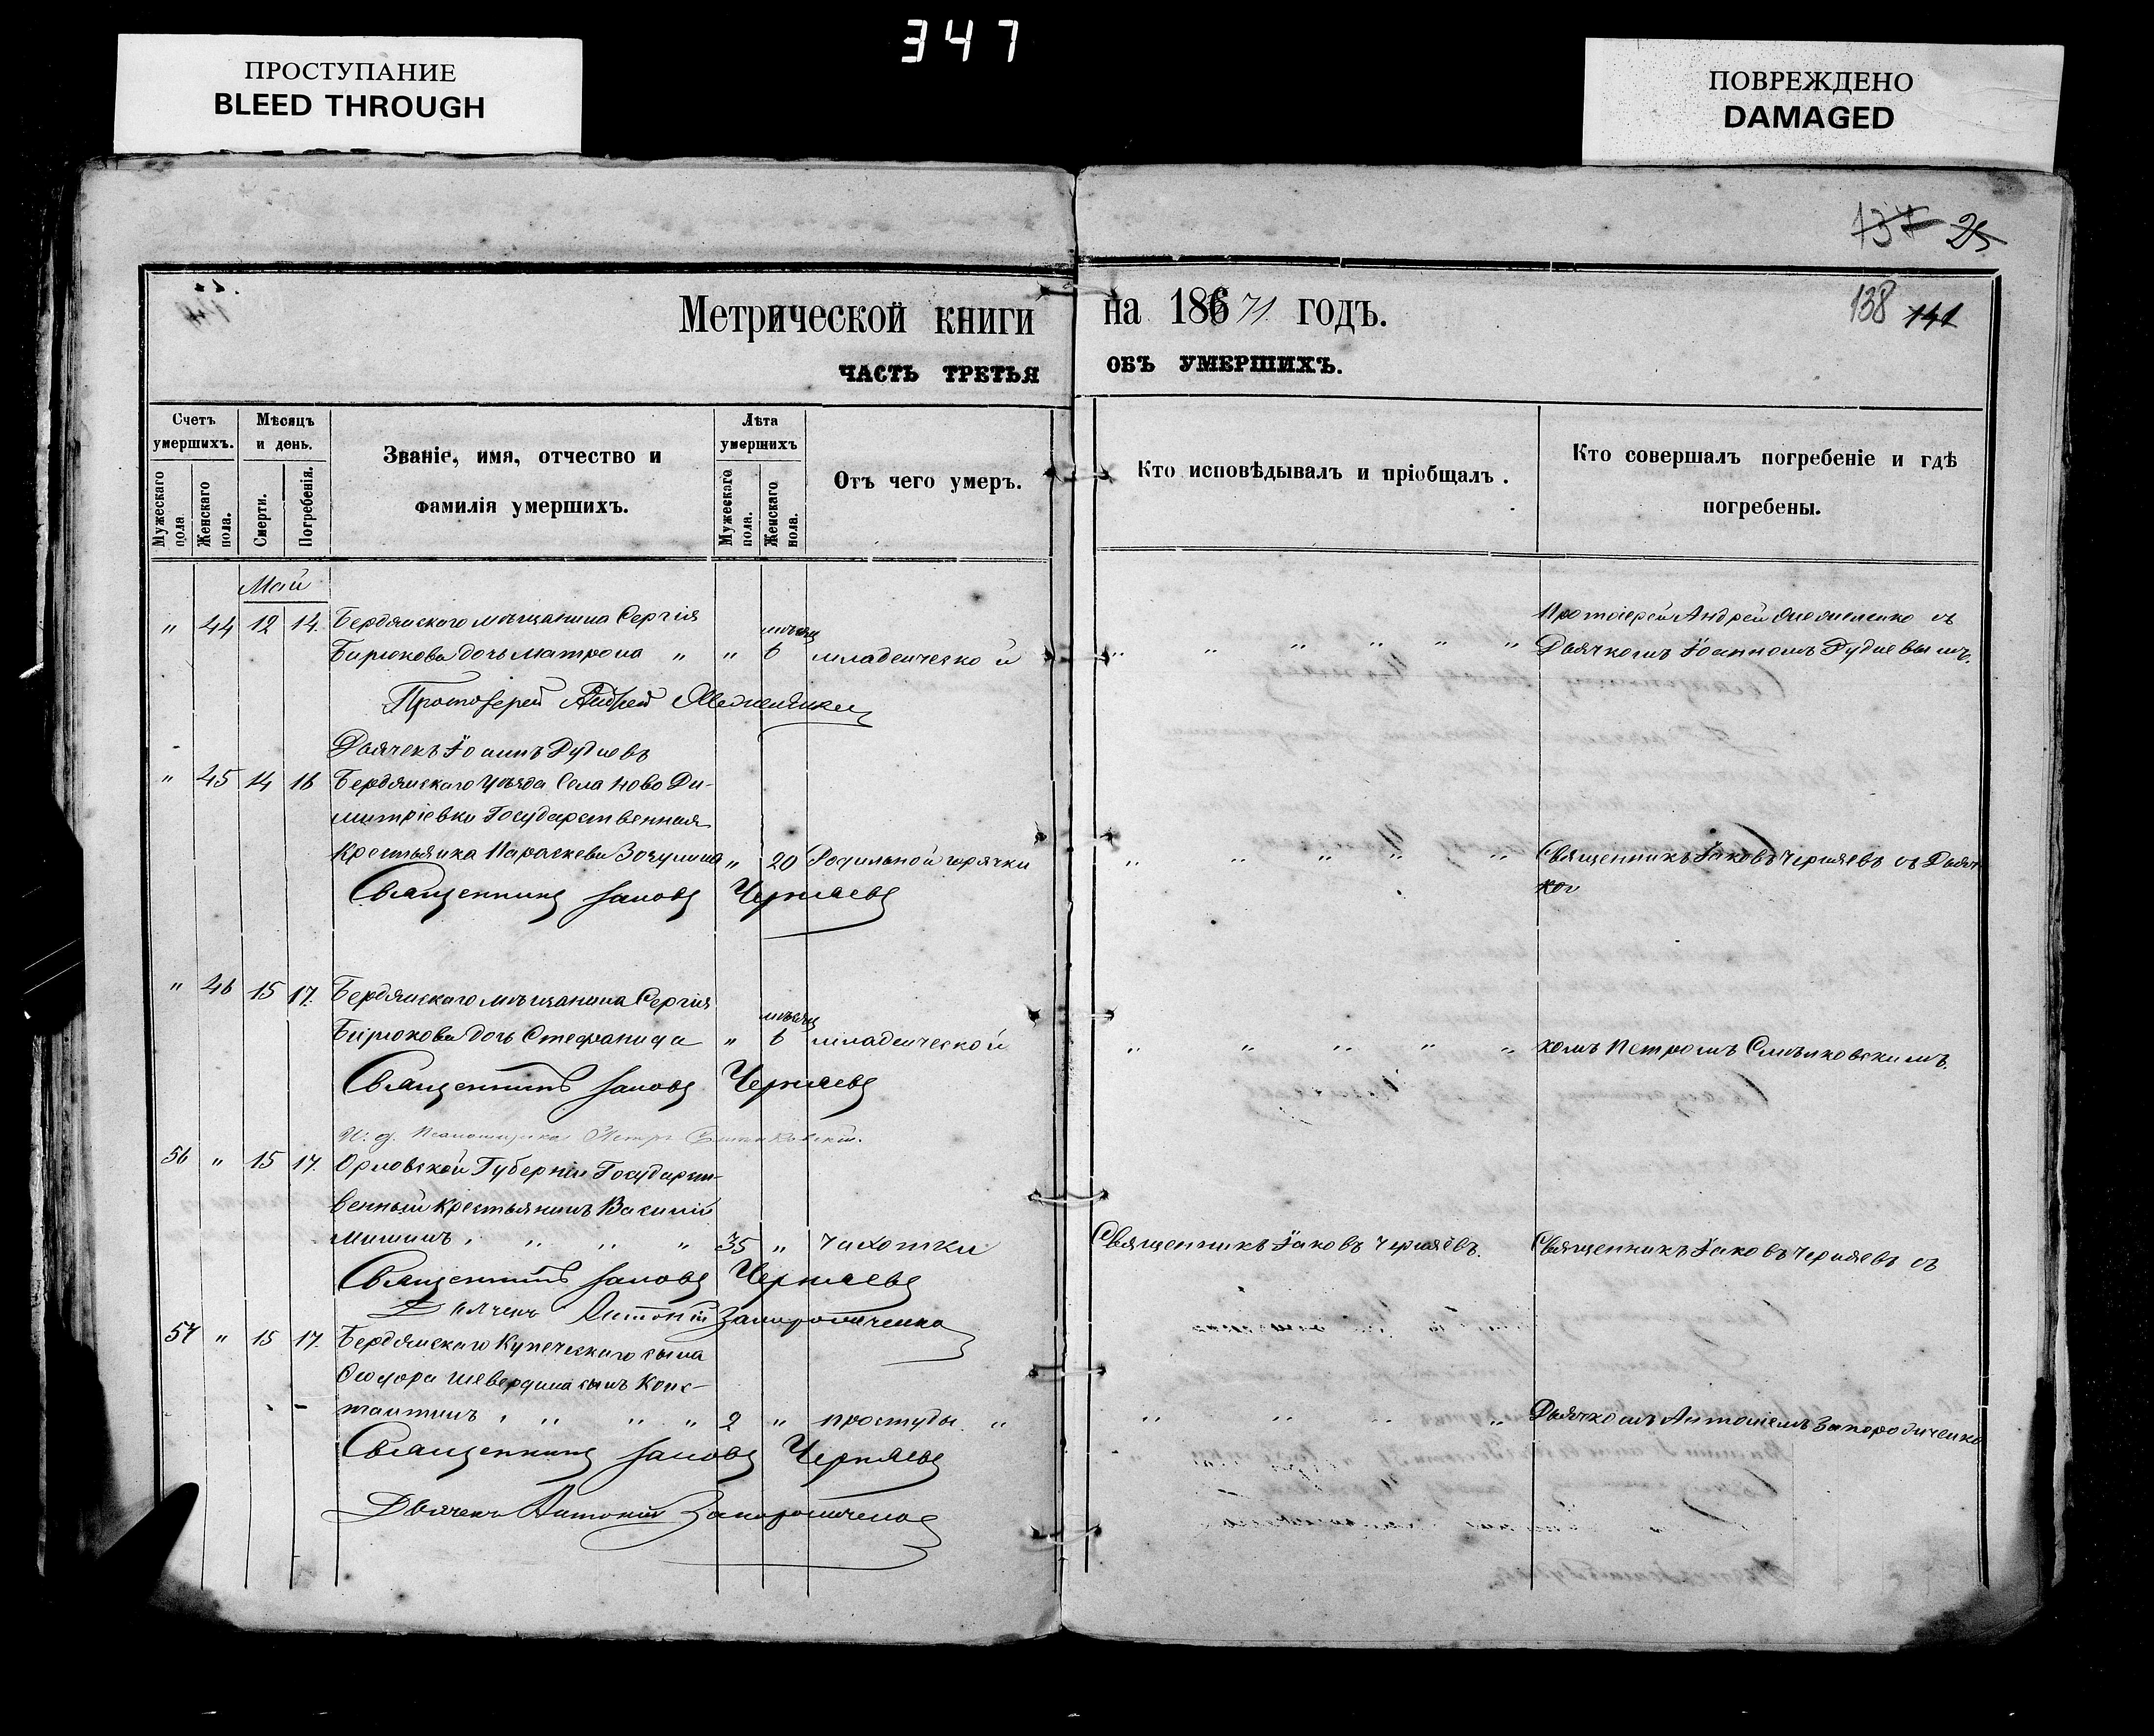 347
ПРОСТУПАНИЕ
BLEED THROUGH
ПОВРЕЖДЕНО
DAMAGED
25
138 141
Метрической книги на 18671 годъ.
ЧАСТЬ ТРЕТЬЯ ОБЪ УМЕРШИХЪ.
Счетъ умершихъ.
Мужескаго пола.
Женскаго пола.
Мѣсяцъ и день.
Смерти.
Погребенія.
Званіе, имя, отчество и
фамилія умершихъ.
Лѣта умершихъ
Мужескаго пола.
Женскаго пола.
Отъ чего умеръ.
Кто исповѣдывалъ и пріобщалъ.
Кто совершалъ погребеніе и гдѣ
погребены.
Май
" 44 12 14. Бердянскаго мѣщанина Сергія
Бирюкова дочь Матрона " " мѣсяц 6 младенческой " " " " " "
Протоіерей Андрей съ
Дьячкомъ Іоанномъ Рудневымъ.
Протоіерей Андрей
Дьячекъ Іоаннъ Рудневъ
" 45 14 16 Бердянскаго Уѣзда Села Ново Ди-
митріевки Государственная
Крестьянка Параскева " 20 Родильной горячки " " " " "
Священникъ Іаковъ Черняевъ съ Дьяч-
ко
Священникъ Іаковъ Черняевъ
" 46 15 17. Бердянскаго мѣщанина Сергія
Бирюкова дочь Стефанида " мѣсяц 6 младенческой " " " " "
комъ Петромъ Смѣлковскимъ.
Священникъ Іаковъ Черняевъ
И. д. Псаломщика Петръ
56 " 15 17. Орловской Губерніи Государст-
венный крестьянинъ Василій
Мишинъ " " " " 35 " Чахотки
Священникъ Іаковъ Черняевъ.
Священникъ Іаковъ Черняевъ съ
Священникъ Іаковъ Черняевъ
Дьячекъ Антоній Запорожченко
57 " 15 17. Бердянскаго Купеческаго сына
Ѳеодора сынъ Конс-
тантинъ " " " " 2 " простуды " " " " "
Дьячкомъ Антоніемъ Запорожченко
Священникъ Іаковъ Черняевъ
Дьячекъ Антоній Запорожченко